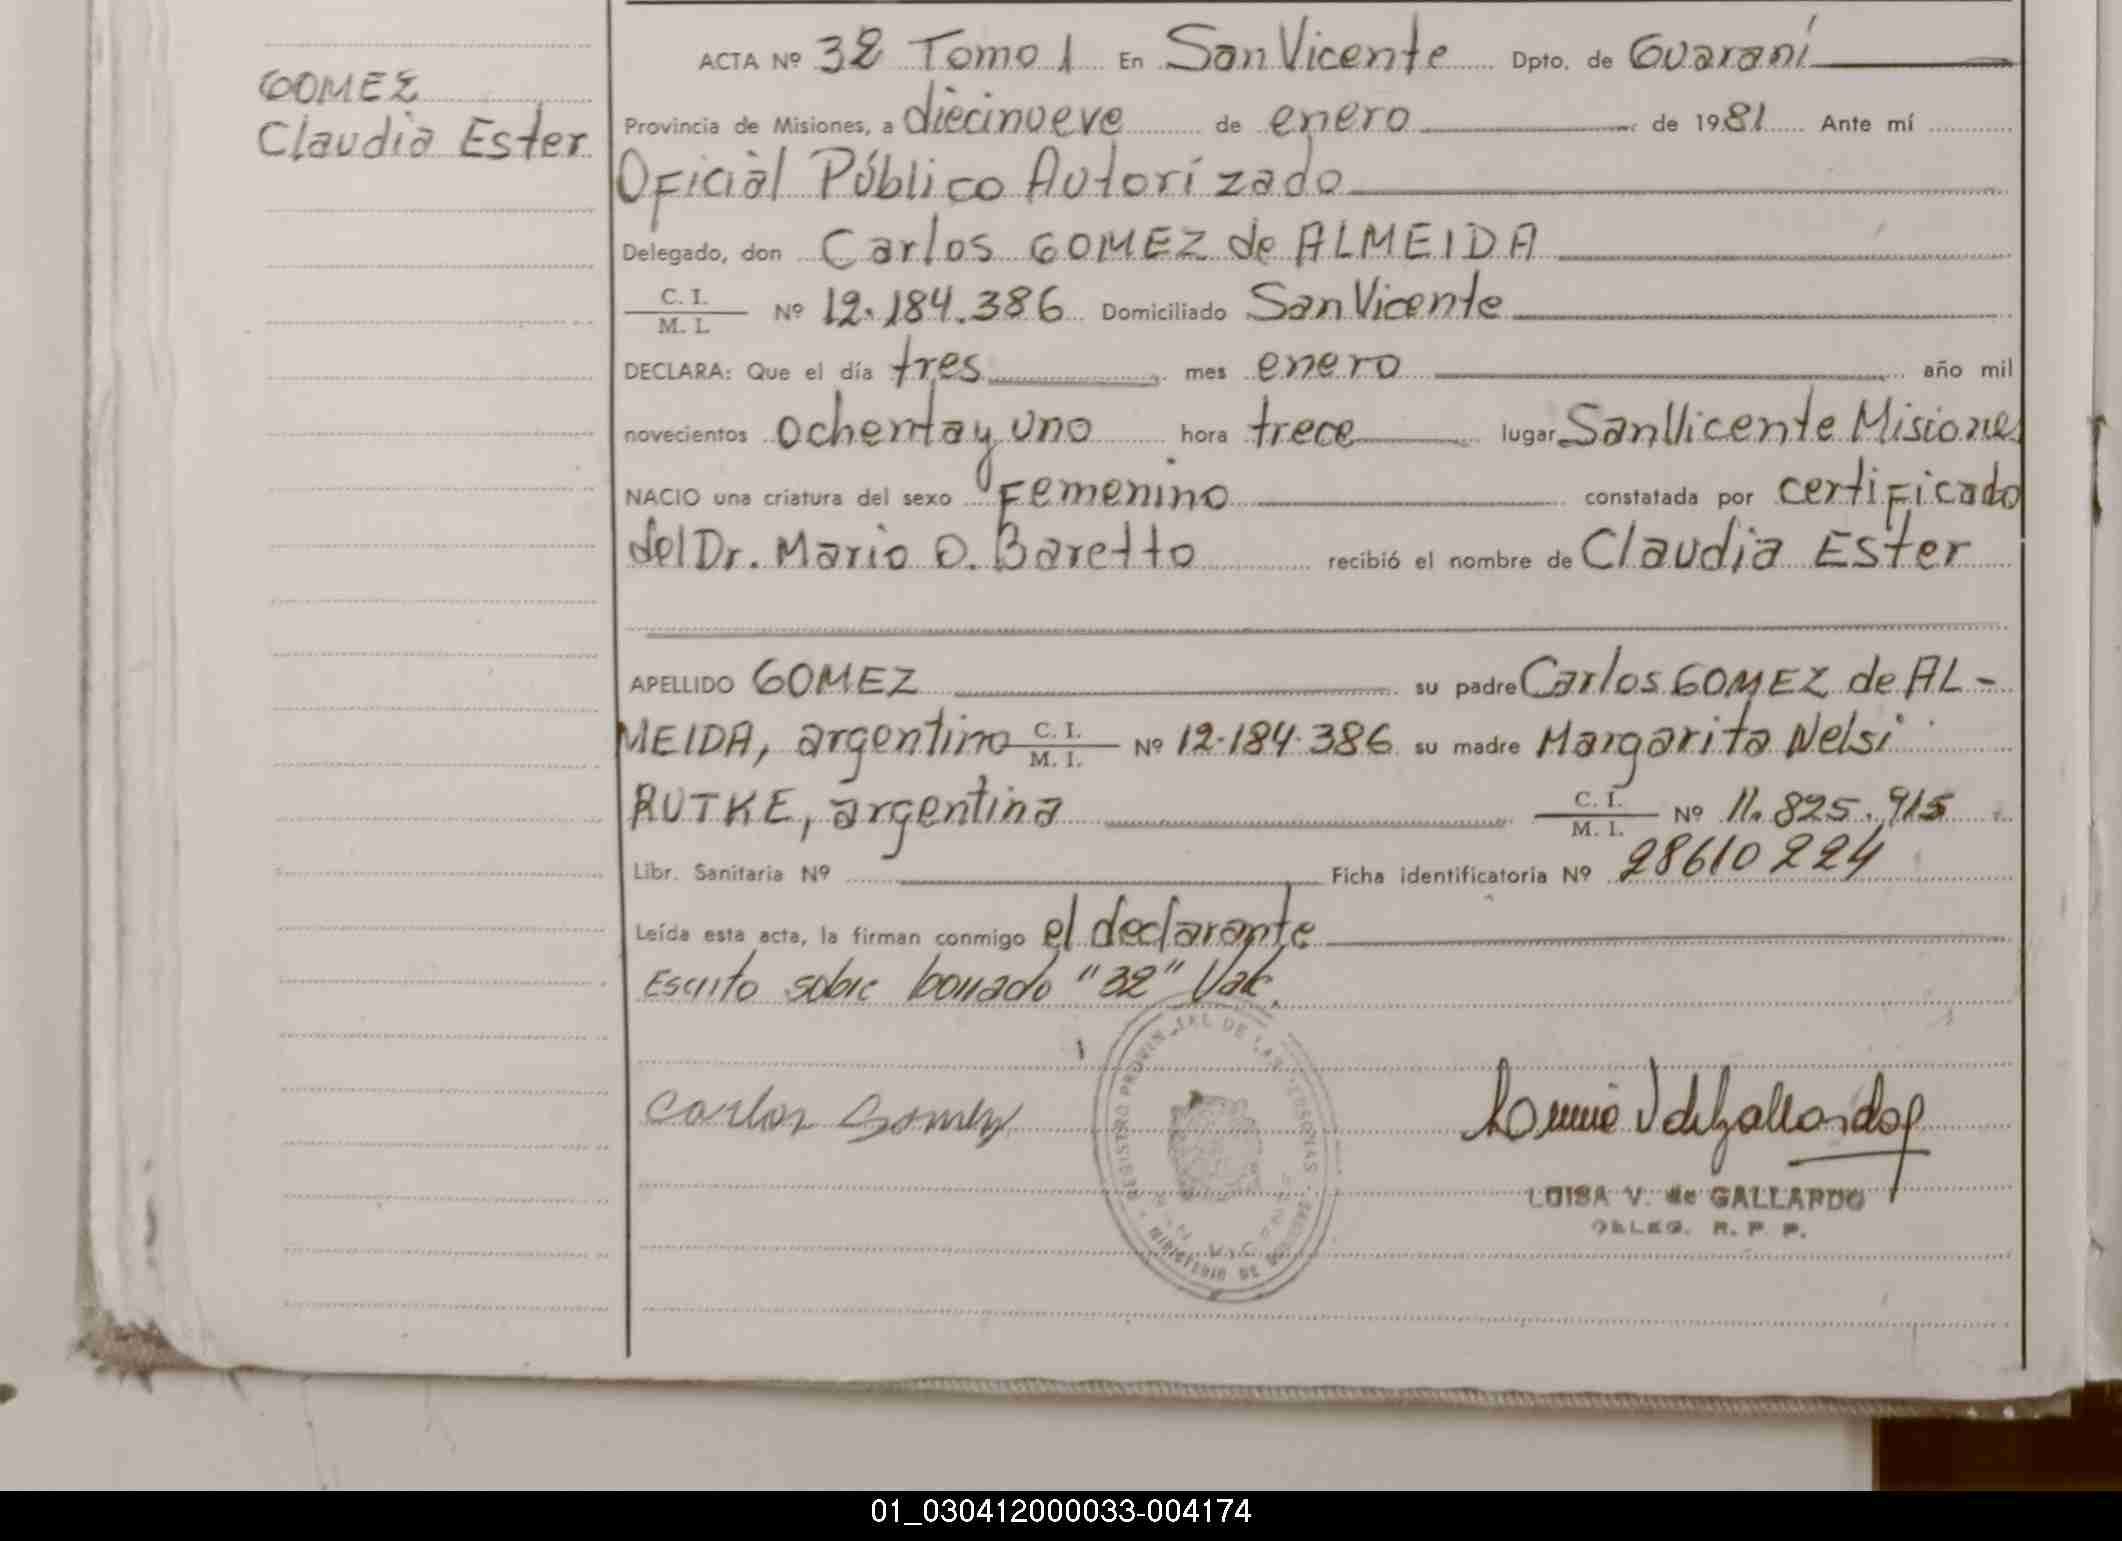 GOMEZ
Claudia Ester
ACTA Nº 32 Tomo 1 En San Vicente Dpto. de Guaraní
Provincia de Misiones, a diecinueve de enero de 1981 Ante mí
Oficial Público Autorizado
Delegado, don Carlos GOMEZ de ALMEIDA
C. I.
M. I. Nº 12.184.386 Domiciliado San Vicente
DECLARA: Que el día tres mes enero año mil
novecientos ochenta y uno hora trece lugar San Vicente Misiones
NACIO una criatura del sexo Femenino constatada por certificado
del Dr. Mario O. Baretto recibió el nombre de Claudia Ester
APELLIDO GOMEZ su padre Carlos GOMEZ de AL-
MEIDA, argentino C. I. M. I. Nº 12.184.386 su madre Margarita Nelsi
RUTKE, argentina C. I. M. I. Nº 11.825.915
Libr. Sanitaria Nº Ficha identificatoria Nº 28610224
Leída esta acta, la firman conmigo el declarante
Escrito sobre borrado "32" Vale.
REGISTRO PROVINCIAL DE LAS PERSONAS
Carlos Gomez
LUISA V. de GALLARDO
DELEG. R. P. P.
01_030412000033-004174